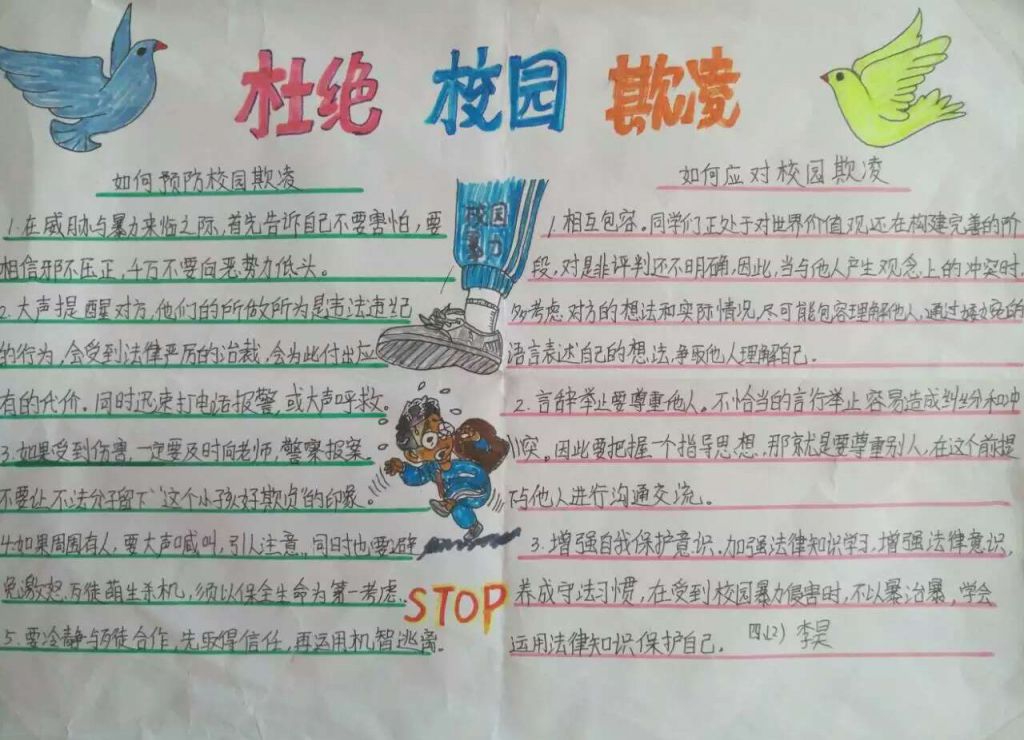 杜绝 校园 欺凌
如何预防校园欺凌
1.在威胁与暴力来临之际,首先告诉自己不要害怕,要
相信邪不压正,千万不要向恶势力低头。
2.大声提醒对方,他们的所做所为是违法违纪
的行为,会受到法律严厉的治裁,会为此付出应
有的代价.同时迅速打电话报警,或大声呼救。
3.如果受到伤害,一定要及时向老师,警察报案。
不要让不法分子留下“这个小孩好欺负”的印象。
4.如果周围有人,要大声喊叫,引人注意,同时也要避
免激怒歹徒萌生杀机,须以保全生命为第一考虑.
5.要冷静与歹徒合作,先取得信任,再运用机智逃离.
校园
暴力
STOP
如何应对校园欺凌
1.相互包容.同学们正处于对世界价值观还在构建完善的阶
段,对是非评判还不明确,因此,当与他人产生观念上的冲突时,
多考虑对方的想法和实际情况,尽可能包容理解他人,通过婉的
语言表述自己的想法,争取他人理解自己.
2.言辞举止要尊重他人.不恰当的言行举止容易造成纠纷和冲
突。因此要把握一个指导思想.那就是要尊重别人,在这个前提
下与他人进行沟通交流.。
3.增强自我保护意识.加强法律知识学习,增强法律意识,
养成守法习惯,在受到校园暴力侵害时,不以暴治暴,学会
运用法律知识保护自己.
四.(2) 李昊